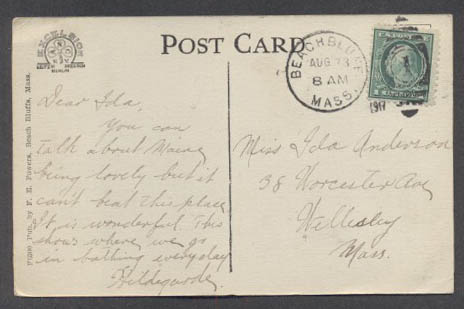 POST CARD
EXCELSIOR
BERLIN
BEACH BLUFF
AUG 13
8 AM
MASS.
1917
Dear Ida,
You can
talk about Maine
being lovely but it
can't beat this place
It is wonderful. This
shows where we go
in bathing everyday
Hildegarde.
Miss Ida Anderson
38 Worcester Ave
Wellesley
Mass.
Pub. by F. E. Powers, Beach Bluffs, Mass.